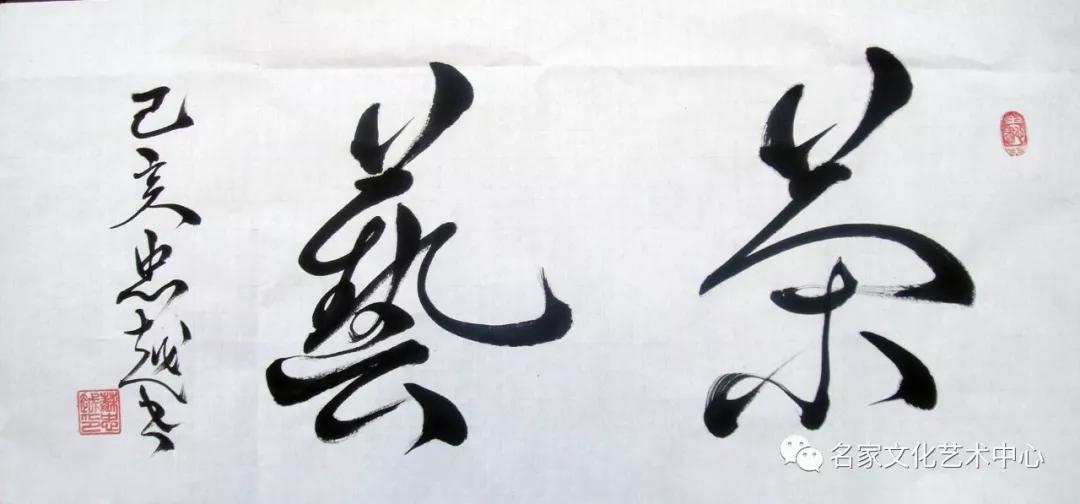 茶藝
己亥忠越书
名家文化艺术中心